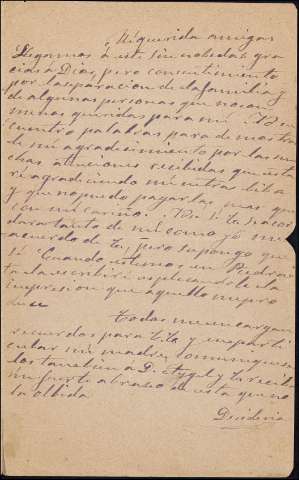 Mi querida amiga
Llegamos á esta sin nobedad gra
cias a Dios, pero con sentimiento
por la separacion de la familia y
de algunas personas que no son
menos queridas para mi. No en
cuentro palabras para demostrar
te mi agradecimiento por las mu
chas atenciones recibidas que esta
ré agradeciendo mientras biba
y que no puedo pagarlas mas que
con mi cariño. No sé si te acor
daras tanto de mi como yo me
acuerdo de ti, pero supongo que
si. Cuando estemos en
ta le escribiré esplicandole la
impresion que aquello me pro
duce
Todos me encargan
recuerdos para tita y en parti
cular mi madre,
los tambien a D. Angel y tu recibe
un fuerte abrazo de esta que no
te olbida
Desideria